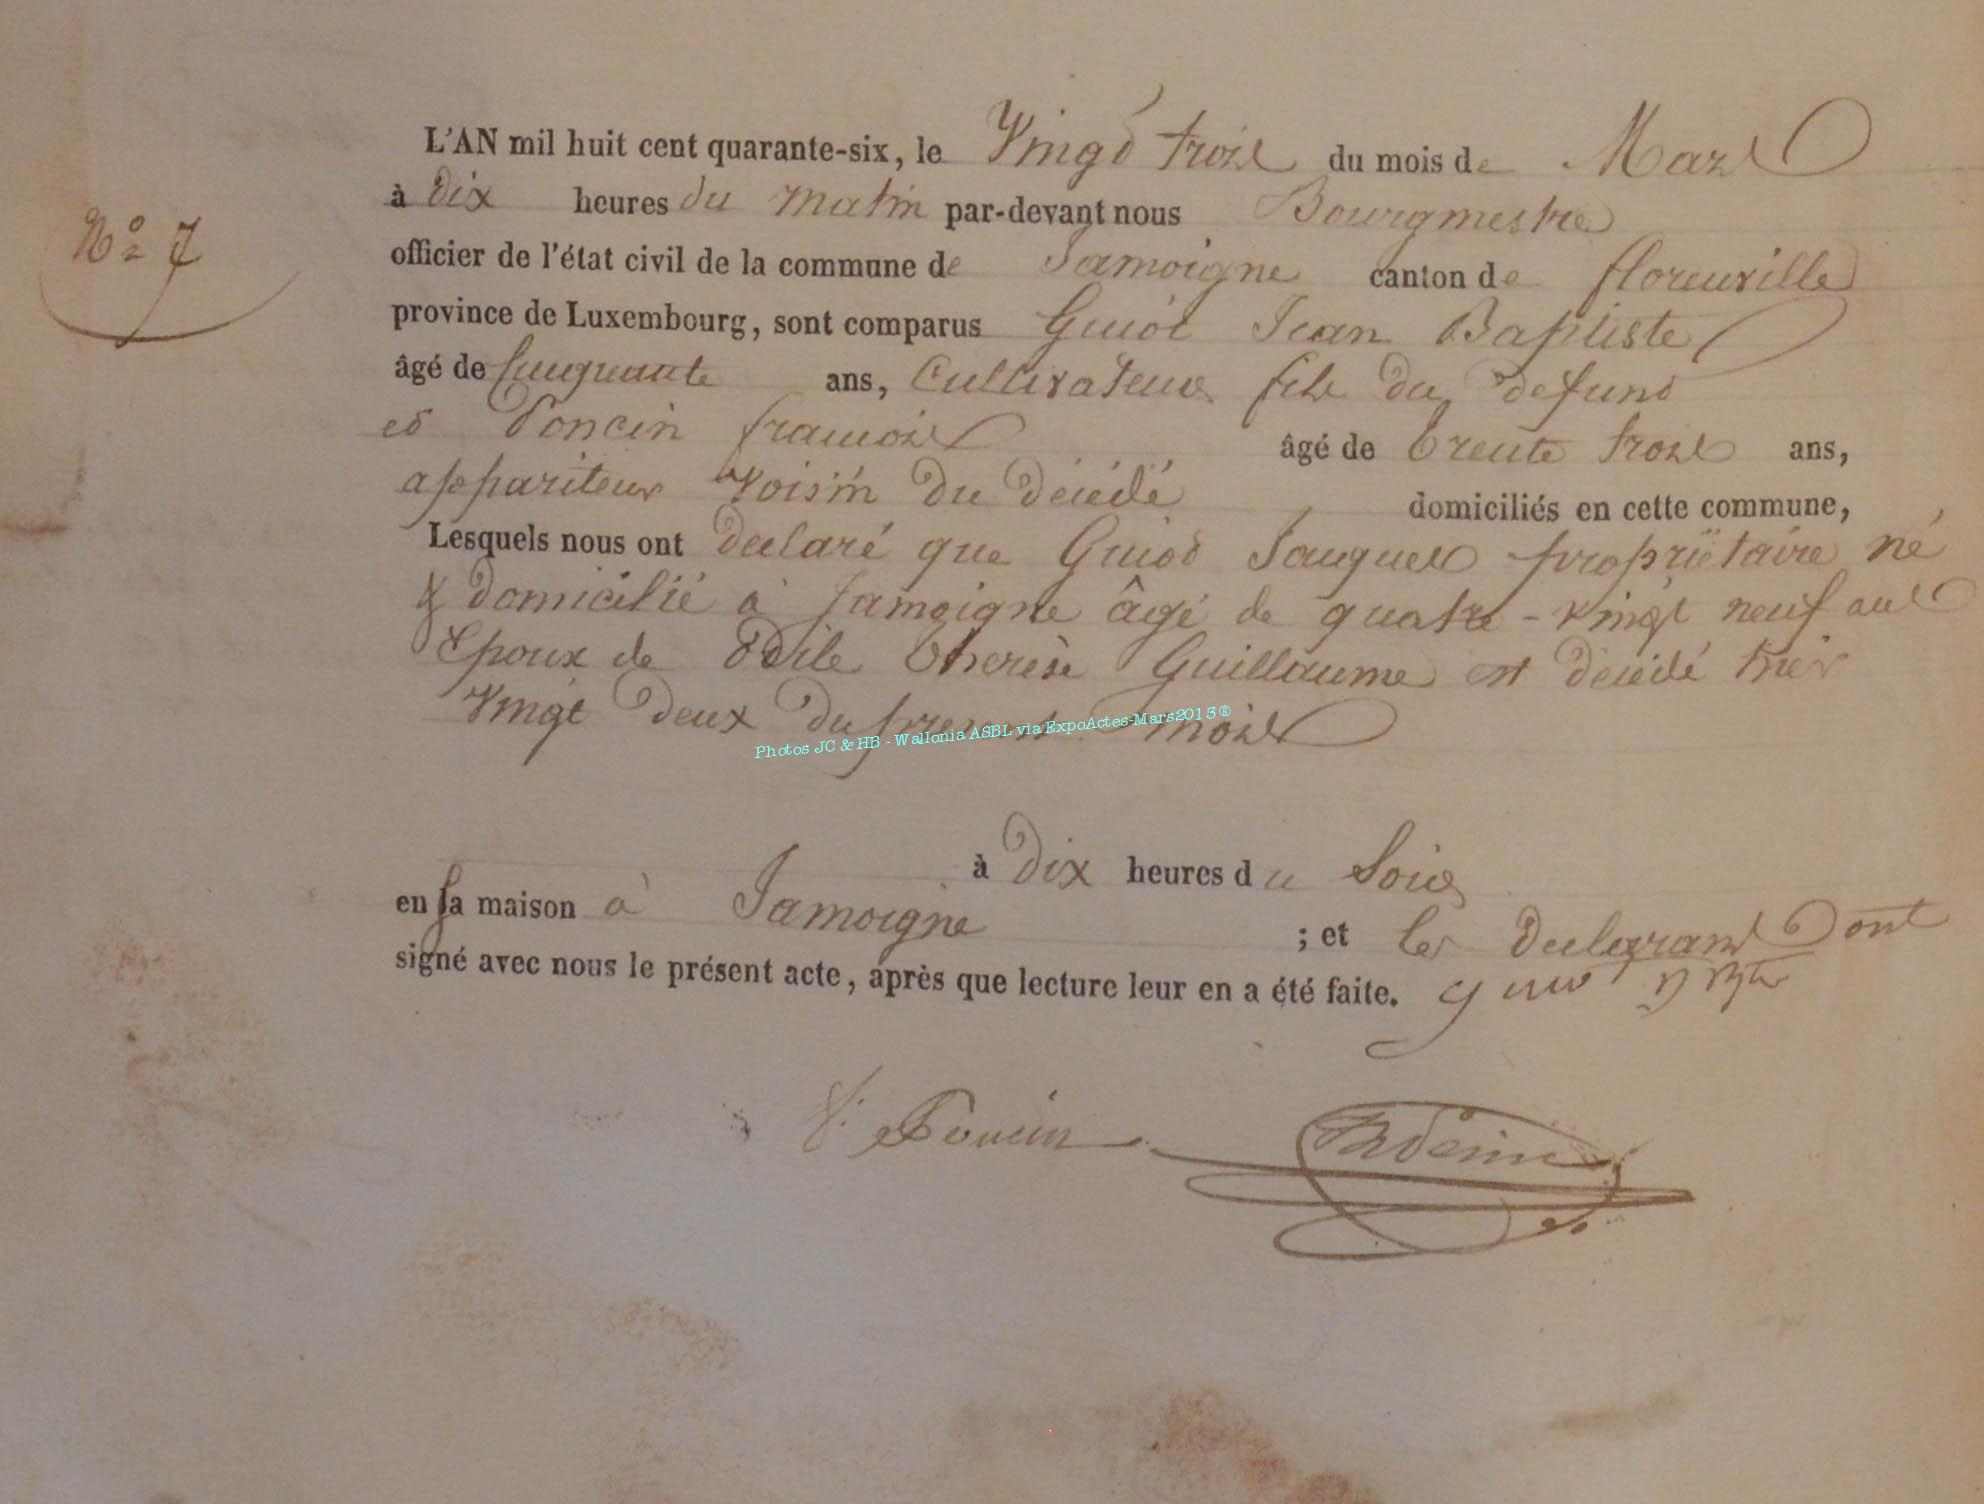 L'AN mil huit cent quarante-six, le Vingt trois du mois de Mars
N° 7
à Dix heures du matin par-devant nous Bourgmestre
officier de l'état civil de la commune de Jamoigne canton de florenville
province de Luxembourg, sont comparus Guiot Jean Baptiste
âgé de Cinquante ans, Cultivateur fils du defunt
et Poncin francois âgé de trente trois ans,
appariteur Voisin du décédé domiciliés en cette commune,
Lesquels nous ont declaré que Guiot Jacques propriétaire né
& domicilié à Jamoigne âgé de quatre-vingt neuf ans
Epoux de Odile therèse Guillaume est décédé hier
Vingt deux du present mois
Photos JC & HB - Wallonia ASBL via ExpoActes-Mars2013®
à Dix heures du Soir
en sa maison à Jamoigne ; et les declarans ont
signé avec nous le présent acte, après que lecture leur en a été faite.
f. Poncin